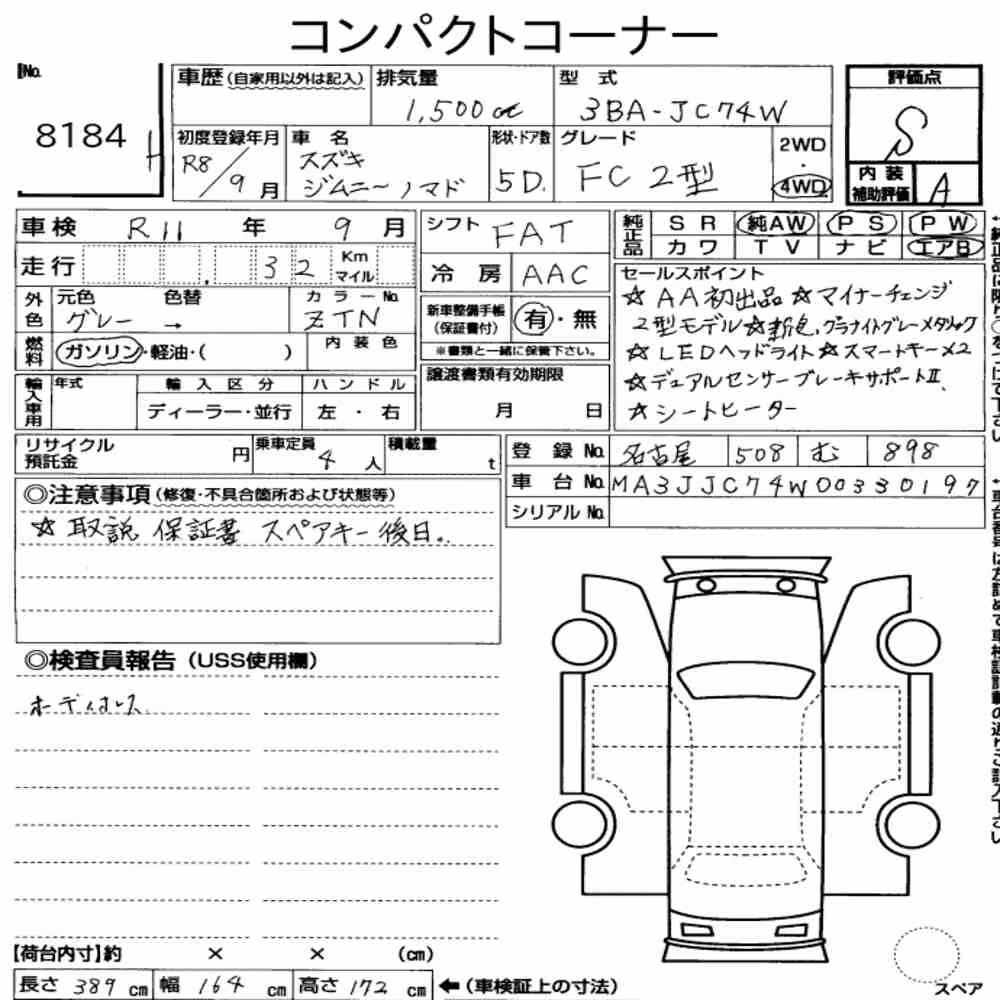 コンパクトコーナー
No.
8184
H
車歴(自家用以外は記入)
排気量
1,500cc
型 式
3BA-JC74W
評価点
S
初度登録年月
R8/9月
車 名
スズキ
ジムニーノマド
形状・ドア数
5D.
グレード
FC 2型
2WD
・
4WD
内 装
補助評価
A
車検 R11 年 9 月
シフト FAT
純正品
SR 純AW PS PW
カワ TV ナビ エアB
走行 32 Km マイル
冷 房 AAC
セールスポイント
☆AA初出品☆マイナーチェンジ
2型モデル☆新色,グラナイトグレーメタリック
☆LEDヘッドライト☆スマートキー×2
☆デュアルセンサーブレーキサポートⅡ、
☆シートヒーター
外色
元色 色替
グレー →
カラーNo.
ZTN
新車整備手帳
(保証書付)
有・無
※書類と一緒に保管下さい。
燃料
ガソリン・軽油・( )
内 装 色
輸入車用
年式
輸 入 区 分
ディーラー・並行
ハ ン ド ル
左 ・ 右
譲渡書類有効期限
月 日
リサイクル
預託金
円
乗車定員
4 人
積載量
t
登 録 No. 名古屋 508 む 898
車 台 No. MA3JJC74W00330197
シリアル No.
◎注意事項(修復・不具合箇所および状態等)
☆取説 保証書 スペアキー後日。
◎検査員報告(USS使用欄)
ボディコース
【荷台内寸】約 × × (cm)
長さ 389 cm 幅 164 cm 高さ 172 cm ←(車検証上の寸法)
スペア